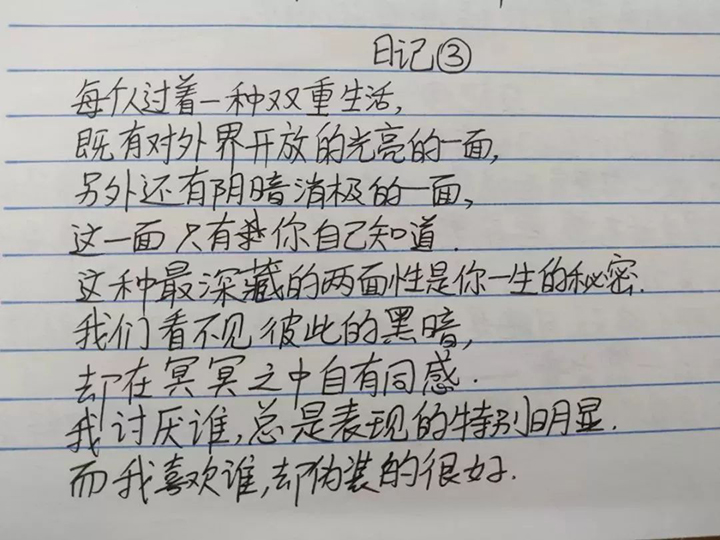 日记③
每个人过着一种双重生活,
既有对外界开放的光亮的一面,
另外还有阴暗消极的一面,
这一面只有你自己知道.
这种最深藏的两面性是你一生的秘密.
我们看不见彼此的黑暗,
却在冥冥之中自有同感.
我讨厌谁,总是表现的特别明显.
而我喜欢谁,却伪装的很好.